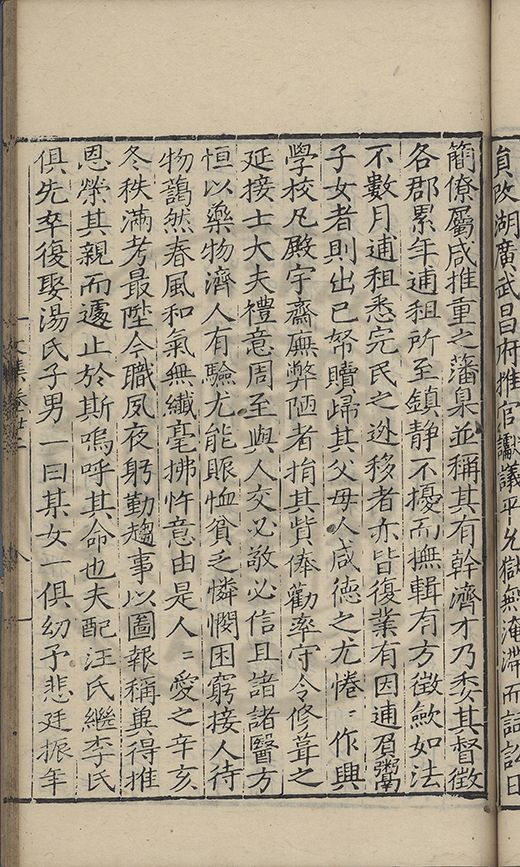 貞改湖廣武昌府推官讞議平允獄無淹滯而詰訟日
簡僚屬咸推重之藩臬並稱其有幹濟才乃委其督徵
各郡累年逋租所至鎮静不擾而撫輯有方徵歛如法
不數月逋租悉完民之迯移者亦皆復業有因逋負鬻
子女者則出己帑贖歸其父母人咸德之尤惓〻作興
學校凡殿宇齋廡弊陋者捐其貲俸勸率守令修葺之
延接士大夫禮意周至與人交必敬必信且諳諸醫方
恒以藥物濟人有驗尤能賑恤貧乏憐憫困窮接人待
物藹然春風和氣無纖毫拂忤意由是人〻愛之辛亥
冬秩滿考最陞今職夙夜躬勤趨事以圖報稱兾得推
恩榮其親而遽止於斯嗚呼其命也夫配汪氏繼李氏
俱先卒復娶湯氏子男一曰某女一俱幼予悲廷振年
文集卷廿二
八